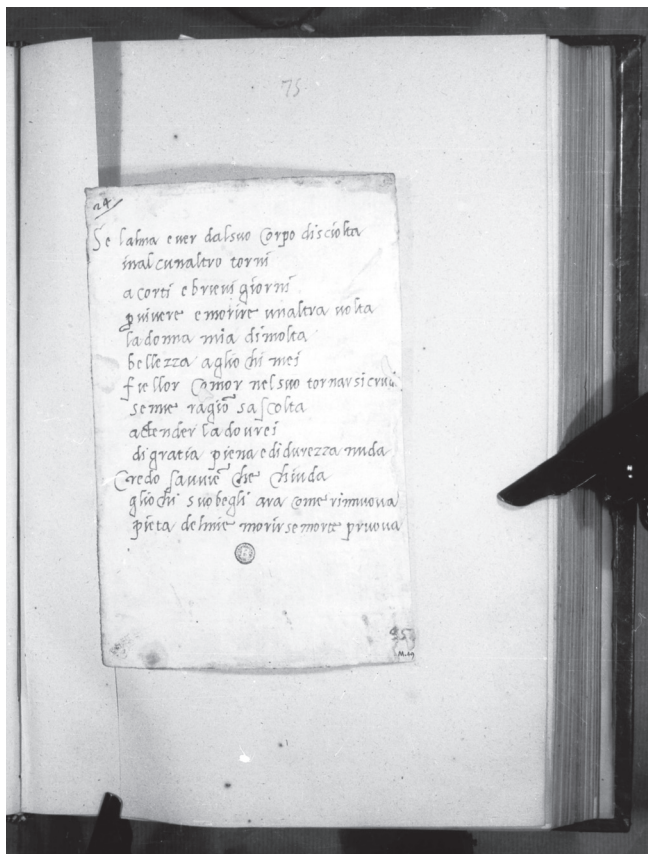 75
24
Se lalma e ver dalsuo Corpo disciolta
inalcunaltro torni
a corti e brievi giorni
p vivere e morire unaltra volta
ladonna mia dimolta
bellezza agliochi mei
fie llor Comor nelsuo tornarsi
semie ragiō sascolta
actender ladovrei
digratia piena edidurezza nuda
Credo savviē che chiuda
gliochi suo begli ara come rimuova
pieta delmie morir se morte pruova
85
M. 29